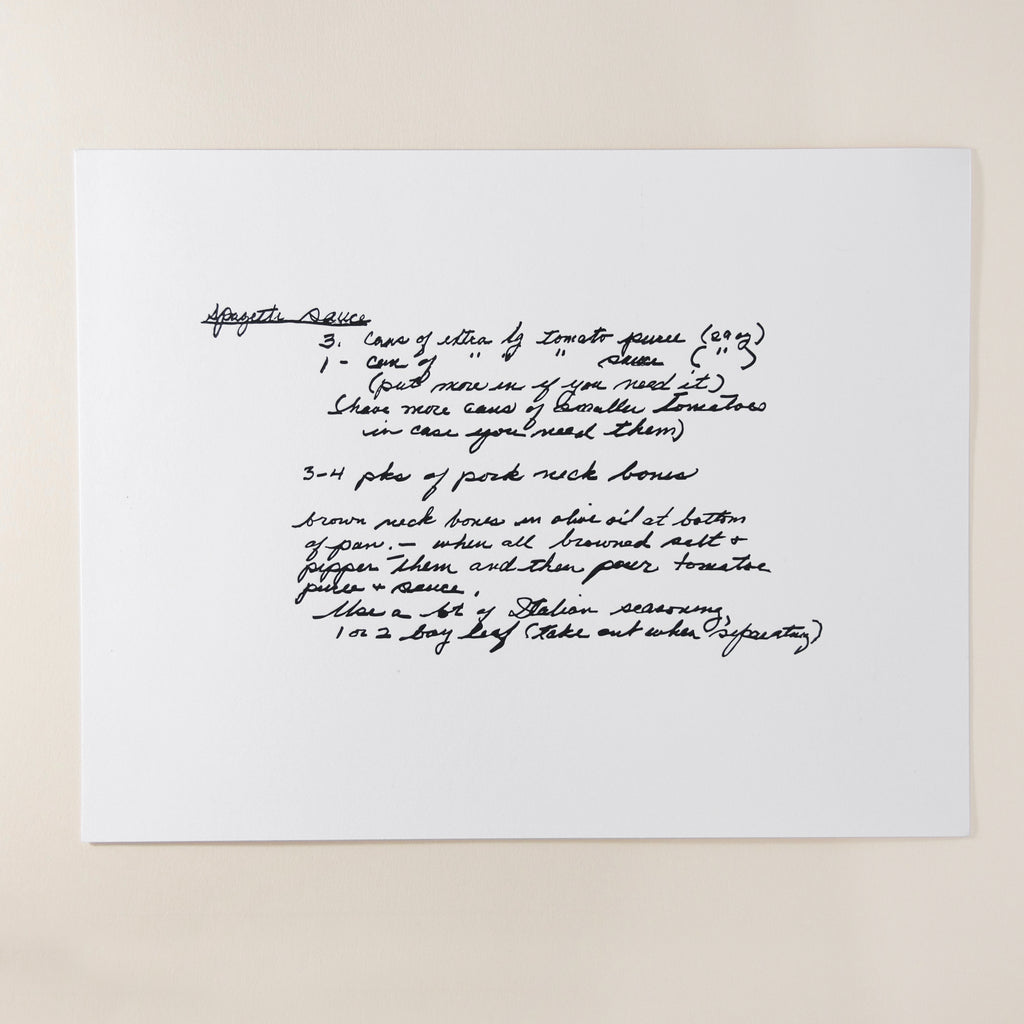 Spagetti Sauce
3. cans of extra lg tomato puree (
1 - can of " " " sauce ( " )
(put more in if you need it)
I have more cans of smaller tomatoes
in case you need them)
3-4 pks of pork neck bones
brown neck bones in olive oil at bottom
of pan. - when all browned salt +
pipper them and then pour tomatoe
puree + sauce.
Use a lot of Italian seasoning,
1 or 2 bay leaf (take out when